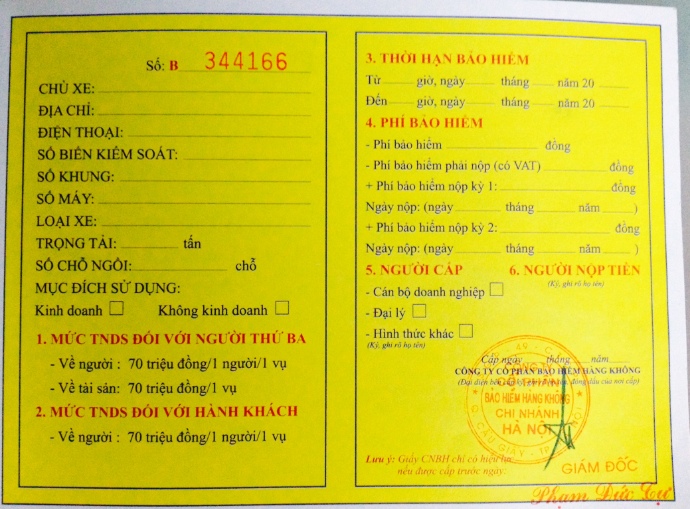 Số: B 344166
CHỦ XE:
ĐỊA CHỈ:
ĐIỆN THOẠI:
SỐ BIỂN KIỂM SOÁT:
SỐ KHUNG:
SỐ MÁY:
LOẠI XE:
TRỌNG TẢI: tấn
SỐ CHỖ NGỒI: chỗ
MỤC ĐÍCH SỬ DỤNG:
Kinh doanh Không kinh doanh
1. MỨC TNDS ĐỐI VỚI NGƯỜI THỨ BA
- Về người : 70 triệu đồng/1 người/1 vụ
- Về tài sản: 70 triệu đồng/1 vụ
2. MỨC TNDS ĐỐI VỚI HÀNH KHÁCH
- Về người : 70 triệu đồng/1 người/1 vụ
3. THỜI HẠN BẢO HIỂM
Từ giờ, ngày tháng năm 20
Đến giờ, ngày tháng năm 20
4. PHÍ BẢO HIỂM
- Phí bảo hiểm đồng
- Phí bảo hiểm phải nộp (có VAT) đồng
+ Phí bảo hiểm nộp kỳ 1: đồng
Ngày nộp: (ngày tháng năm )
+ Phí bảo hiểm nộp kỳ 2: đồng
Ngày nộp: (ngày tháng năm )
5. NGƯỜI CẤP 6. NGƯỜI NỘP TIỀN
(Ký, ghi rõ họ tên)
- Cán bộ doanh nghiệp
- Đại lý
- Hình thức khác
(Ký, ghi rõ họ tên)
Cấp ngày tháng năm
CÔNG TY CỔ PHẦN BẢO HIỂM HÀNG KHÔNG
(Đại diện bên cấp ký, ghi rõ họ tên, đóng dấu của nơi cấp)
CỔ PHẦN
BẢO HIỂM HÀNG KHÔNG
CHI NHÁNH
HÀ NỘI
Q. CẦU GIẤY - TP. HÀ NỘI
Lưu ý: Giấy CNBH chỉ có hiệu lực
nếu được cấp trước ngày:
GIÁM ĐỐC
Phạm Đức Tự